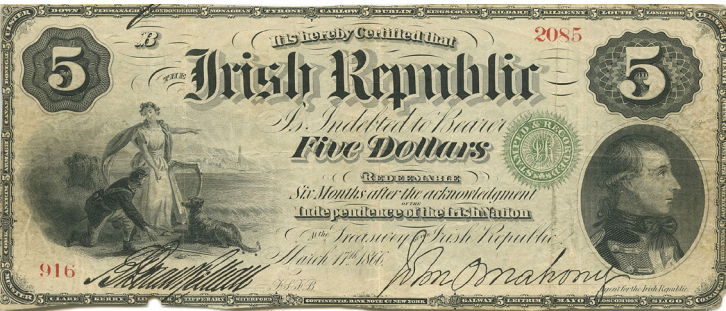 ULSTER DOWN 5 FERMANAGH 5 MONAGHAN 5 TYRONE 5 CARLOW 5 DUBLIN 5 KINGS COUNTY 5 KILDARE 5 KILKENNY 5 LOUTH 5 LONGFORD
B
It is hereby Certified that
2085
5
THE
Irish Republic
5
Is Indebted to Bearer
Five Dollars
REDEEMABLE
Six Months after the acknowledgment
OF THE
Independence of the Irish Nation
At the Treasury of the Irish Republic
March 17th 186
916
John O'Mahony
Agent for the Irish Republic.
MUNSTER 5 CLARE 5 KERRY 5 5 TIPPERARY 5 WATERFORD 5 CONTINENTAL BANK NOTE CO. NEW YORK 5 GALWAY 5 LEITRIM 5 MAYO 5 ROSCOMMON 5 SLIGO
CORK
ANTRIM
ARMAGH
CAVAN
DONEGAL